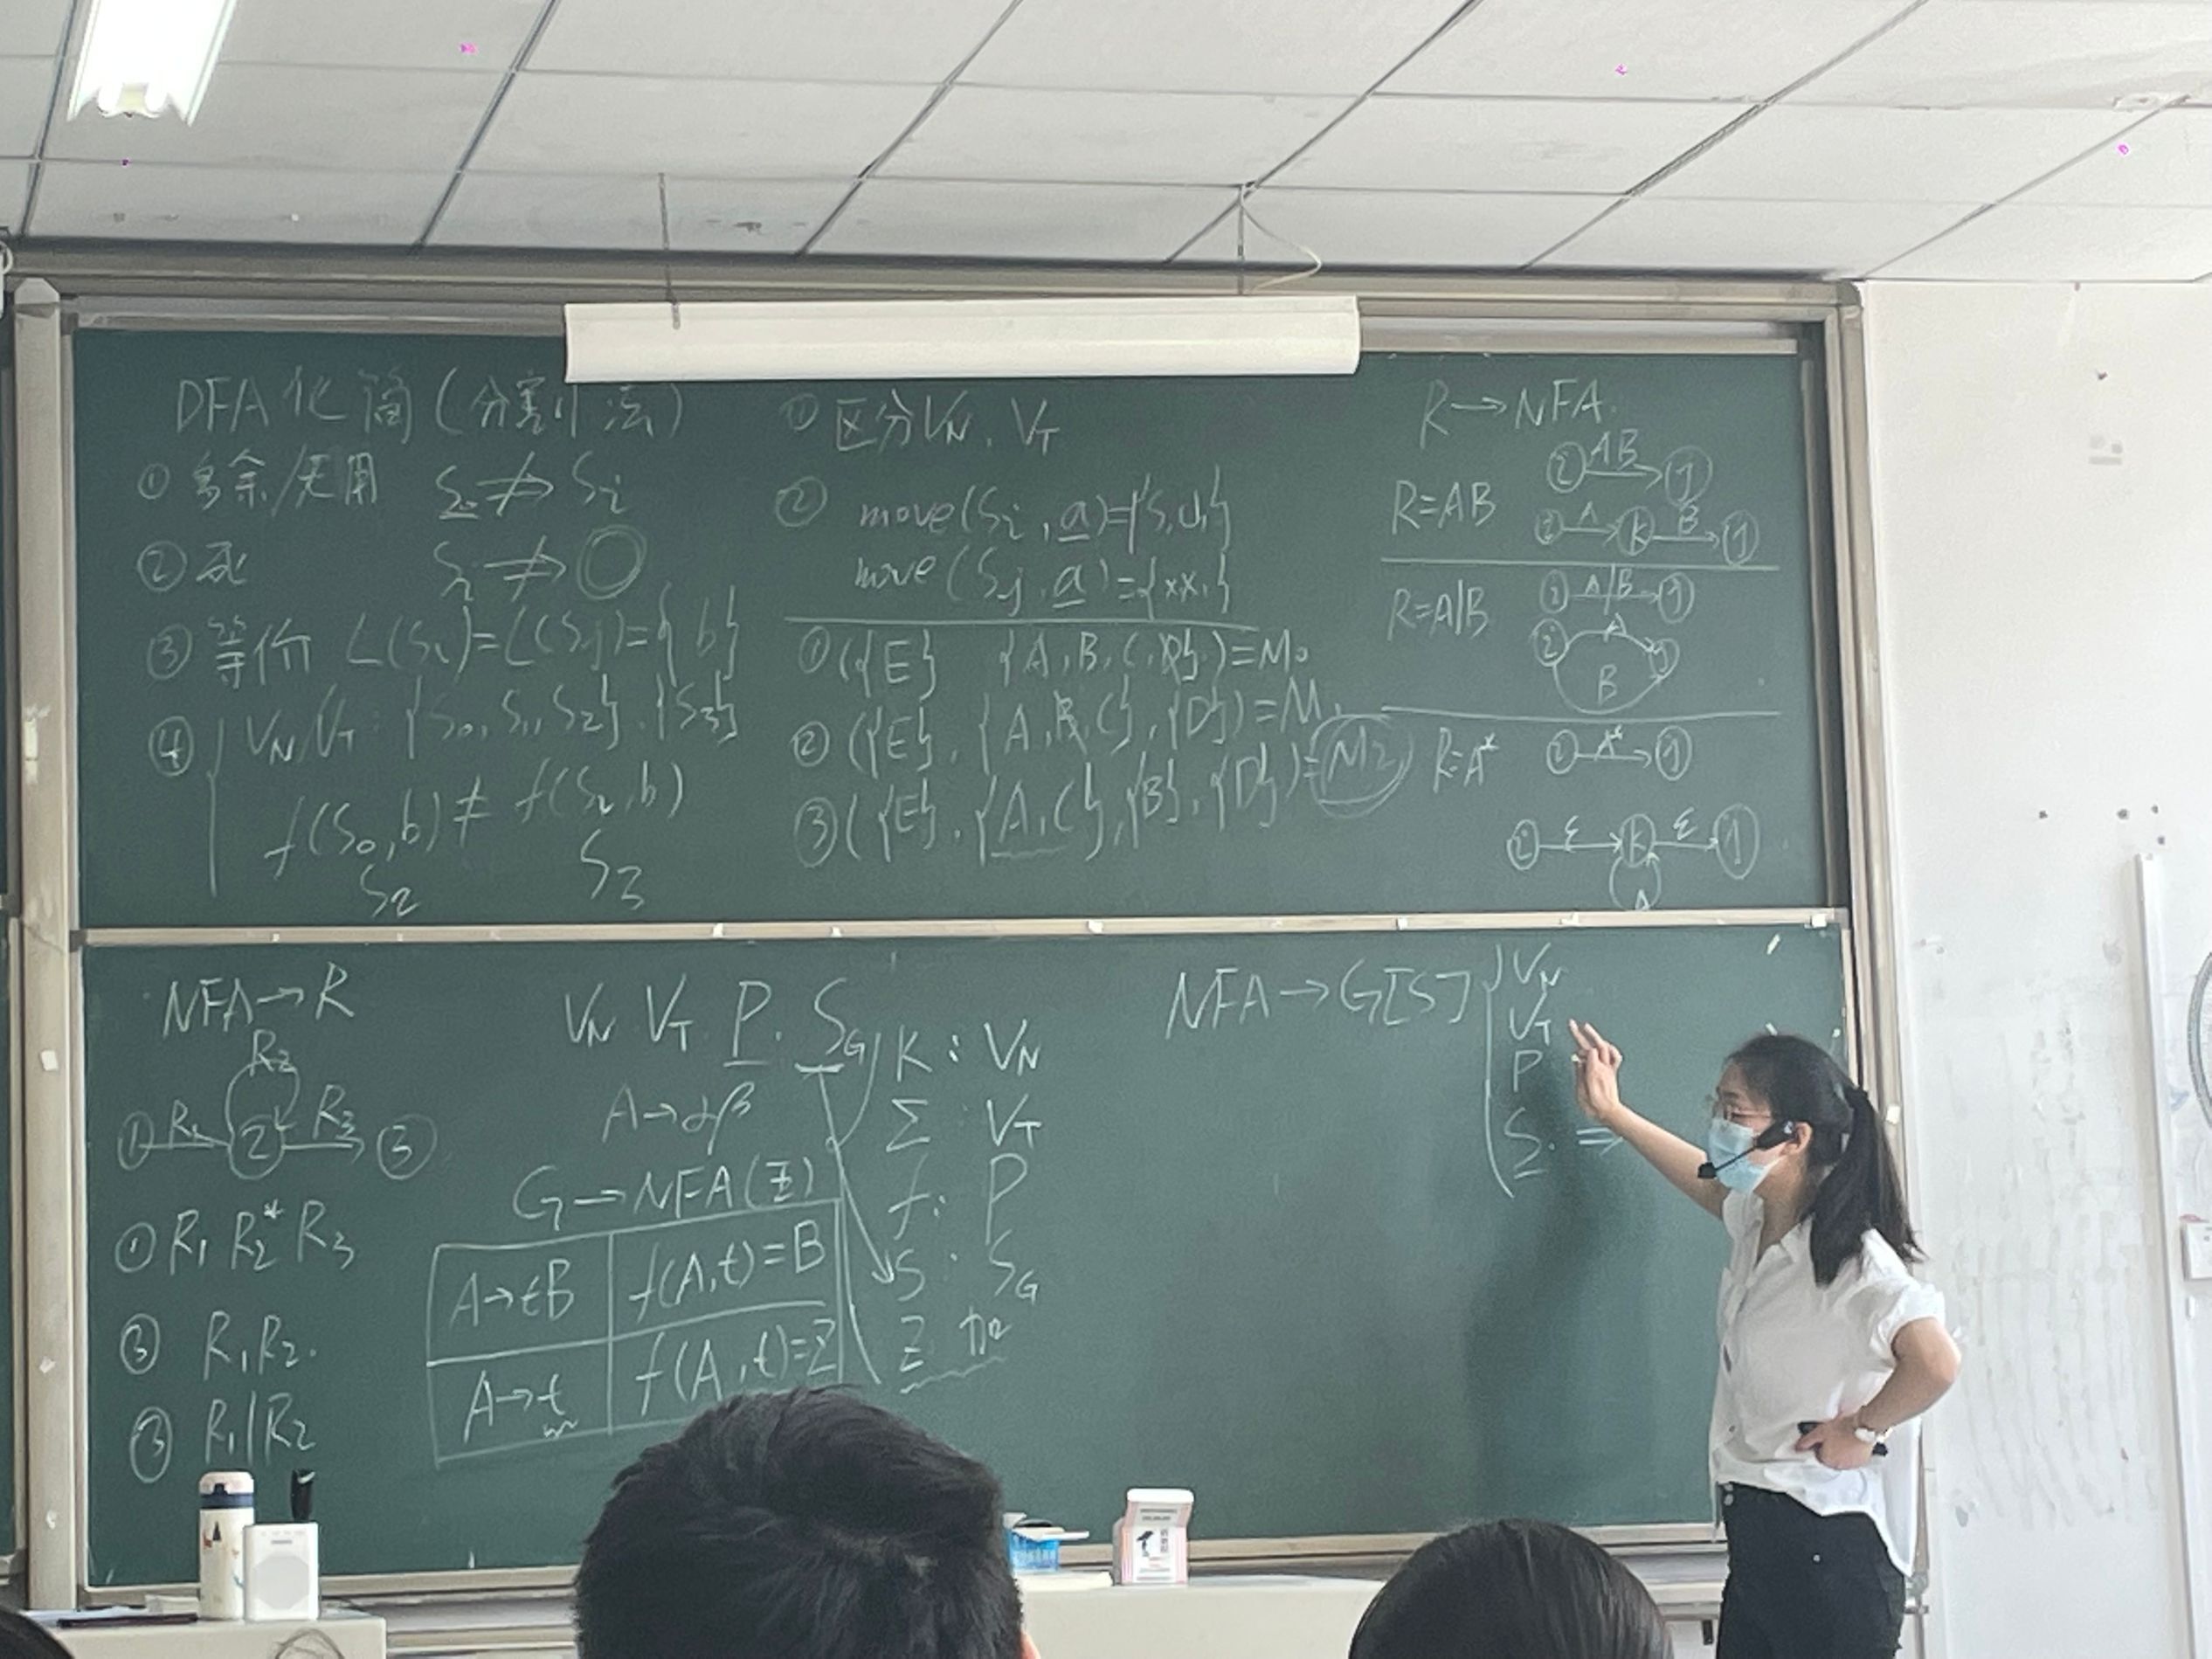 DFA化简(分割法)
① 多余/无用 S₀ ⇏ Sᵢ
② 死 Sᵢ ⇏ ◯
③ 等价 L(Sᵢ)=L(Sⱼ)={b}
④ V_N V_T: {S₀, S₁, S₂}. {S₃}
f(S₀,b) ≠ f(S₂,b)
S₂ S₃
① 区分V_N. V_T
② move(Sᵢ, a)={S,U,}
move(Sⱼ, a)={xx,}
① ({E} {A,B,C,D})=M₀
② ({E}, {A,B,C}, {D})=M₁
③ ({E}, {A,C}, {B}, {D})=M₂
R→NFA.
i AB j
R=AB i A K B j
R=A|B i A|B j
i A j
B
R=A* i A* j
i ε K ε j
A
NFA→R
R₂
① R₁ ② R₃ ③
① R₁ R₂* R₃
② R₁R₂.
③ R₁|R₂
V_N V_T. P. S_G
A→αβ
G→NFA(Z)
A→tB f(A,t)=B
A→t f(A,t)=Z
K: V_N
Σ: V_T
f: P
S: S_G
Z 加
NFA→G[S]
V_N
V_T
P
S. ⇒